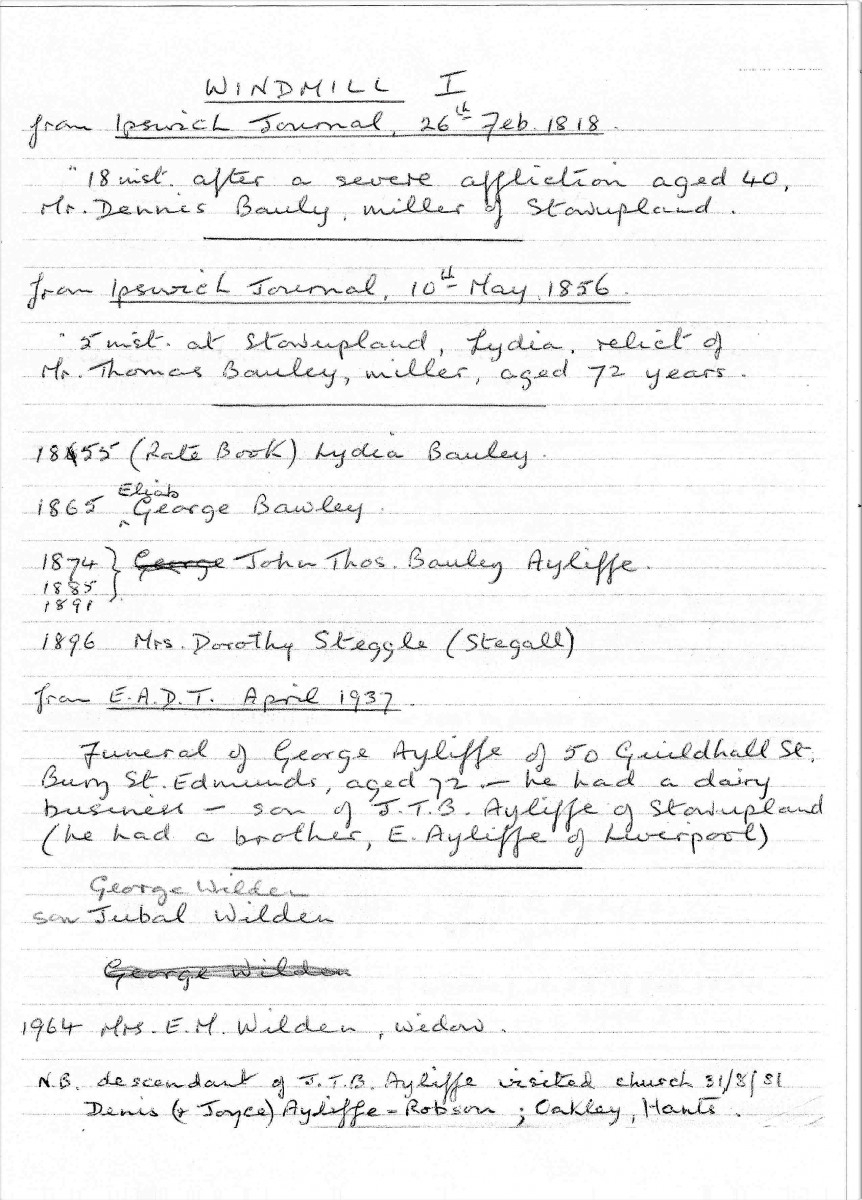 WINDMILL I
from Ipswich Journal, 26th Feb. 1818.
"18 inst. after a severe affliction aged 40,
Mr. Dennis Bauly, miller of Stowupland.
from Ipswich Journal, 10th May, 1856.
"5 inst. at Stowupland, Lydia, relict of
Mr. Thomas Bauley, miller, aged 72 years.
1855 (Rate Book) Lydia Bauley.
1865 Eliab George Bawley.
1874 } George John Thos. Bauley Ayliffe.
1885
1891
1896 Mrs. Dorothy Steggle (Stegall)
from E.A.D.T. April 1937.
Funeral of George Ayliffe of 50 Guildhall St.
Bury St. Edmunds, aged 72 - he had a dairy
business - son of J.T.B. Ayliffe of Stowupland
(he had a brother, E. Ayliffe of Liverpool)
George Wilden
son Jubal Wilden
George Wilden
1964 Mrs. E.M. Wilden, widow.
N.B. descendant of J.T.B. Ayliffe visited church 31/8/81
Denis (& Joyce) Ayliffe-Robson; Oakley, Hants.